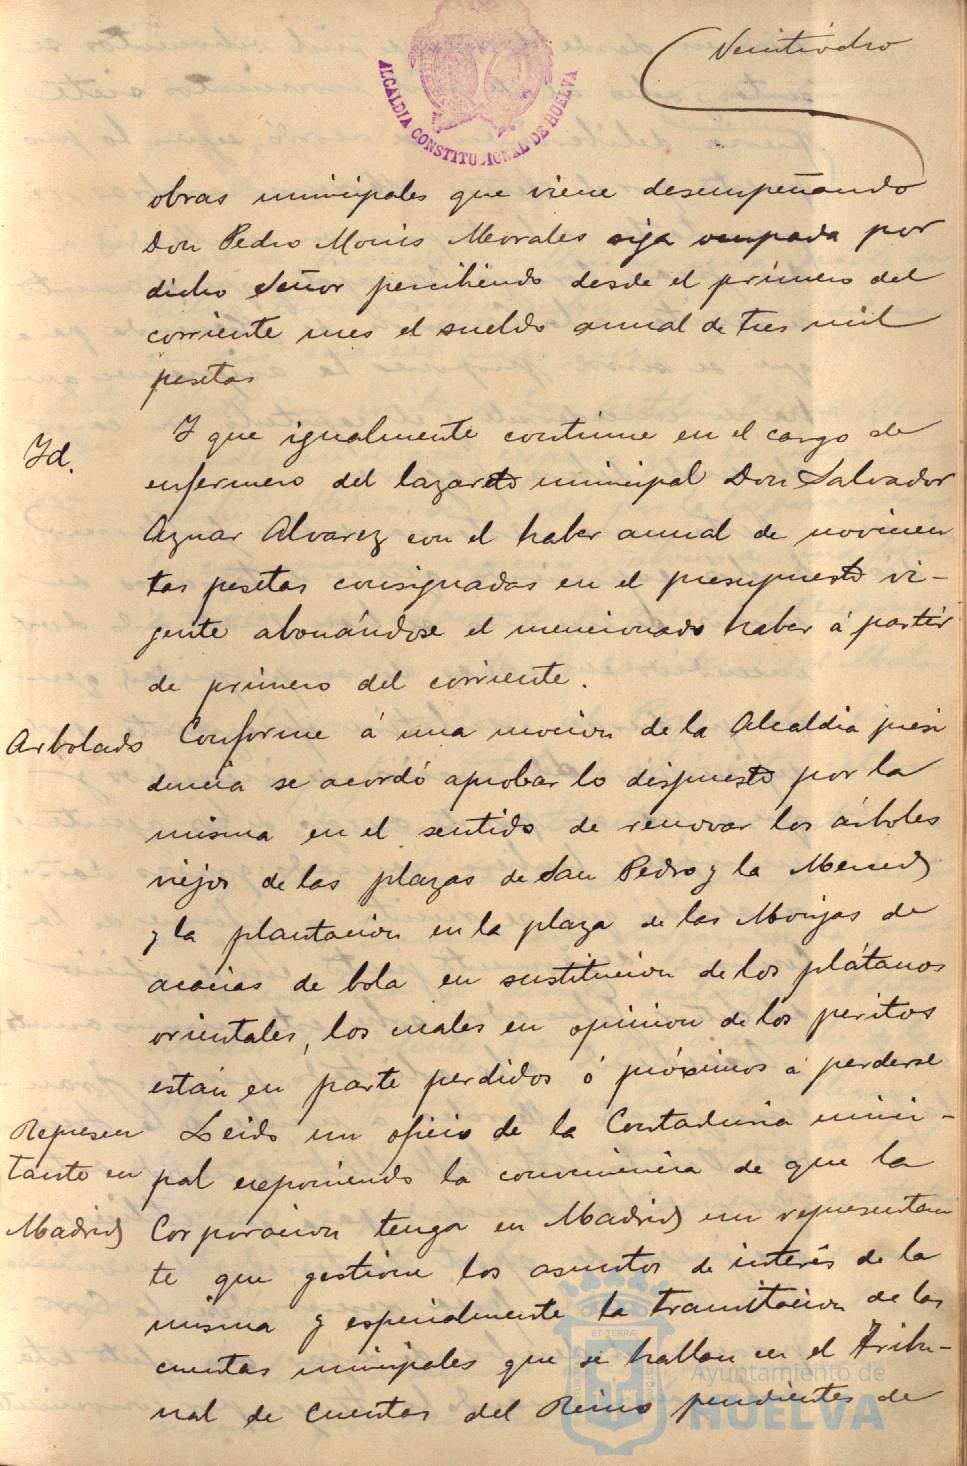 Veintiocho
ALCALDIA CONSTITUCIONAL DE HUELVA
obras municipales que viene desempeñando
Don Pedro Monis Morales siga ocupada por
dicho Señor percibiendo desde el primero del
corriente mes el sueldo anual de tres mil
pesetas
Id.
Y que igualmente continue en el cargo de
enfermero del lazareto municipal Don Salvador
Aznar Alvarez con el haber anual de novecien
tas pesetas consignadas en el presupuesto vi-
gente abonándose el mencionado haber á partir
de primero del corriente.
Arbolado
Conforme á una mocion de la Alcaldia presi
dencia se acordó aprobar lo dispuesto por la
misma en el sentido de renovar los árboles
viejos de las plazas de San Pedro y la Merced
y la plantacion en la plaza de las Monjas de
acacias de bola en sustitucion de los plátanos
orientales, los cuales en opinion de los peritos
están en parte perdidos ó próximos á perderse
Represen
tante en
Madrid
Leido un oficio de la Contaduria munici-
pal exponiendo la conveniencia de que la
Corporacion tenga en Madrid un representan
te que gestione los asuntos de interés de la
misma y especialmente la tramitacion de las
cuentas municipales que se hallan en el Tribu-
nal de Cuentas del Reino pendientes de
Ayuntamiento de
HUELVA